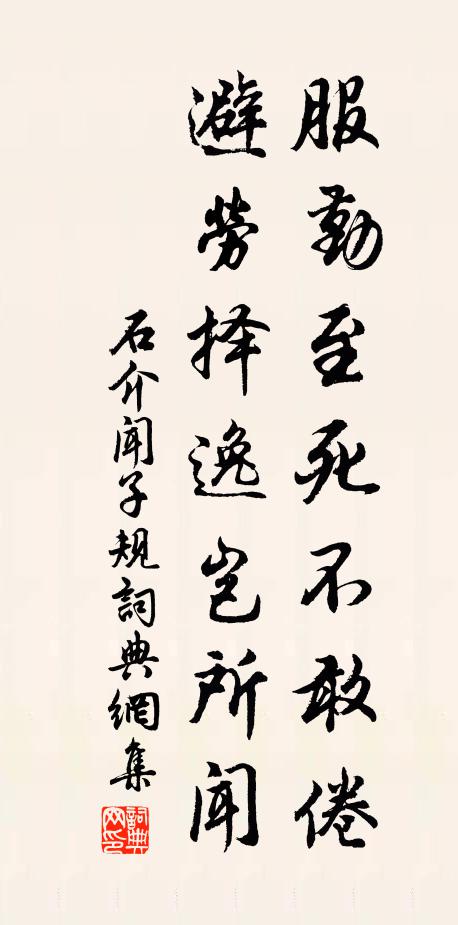 服勤至死不敢倦
避勞择逸岂所聞
石介聞子規詞典網集
詞典网印